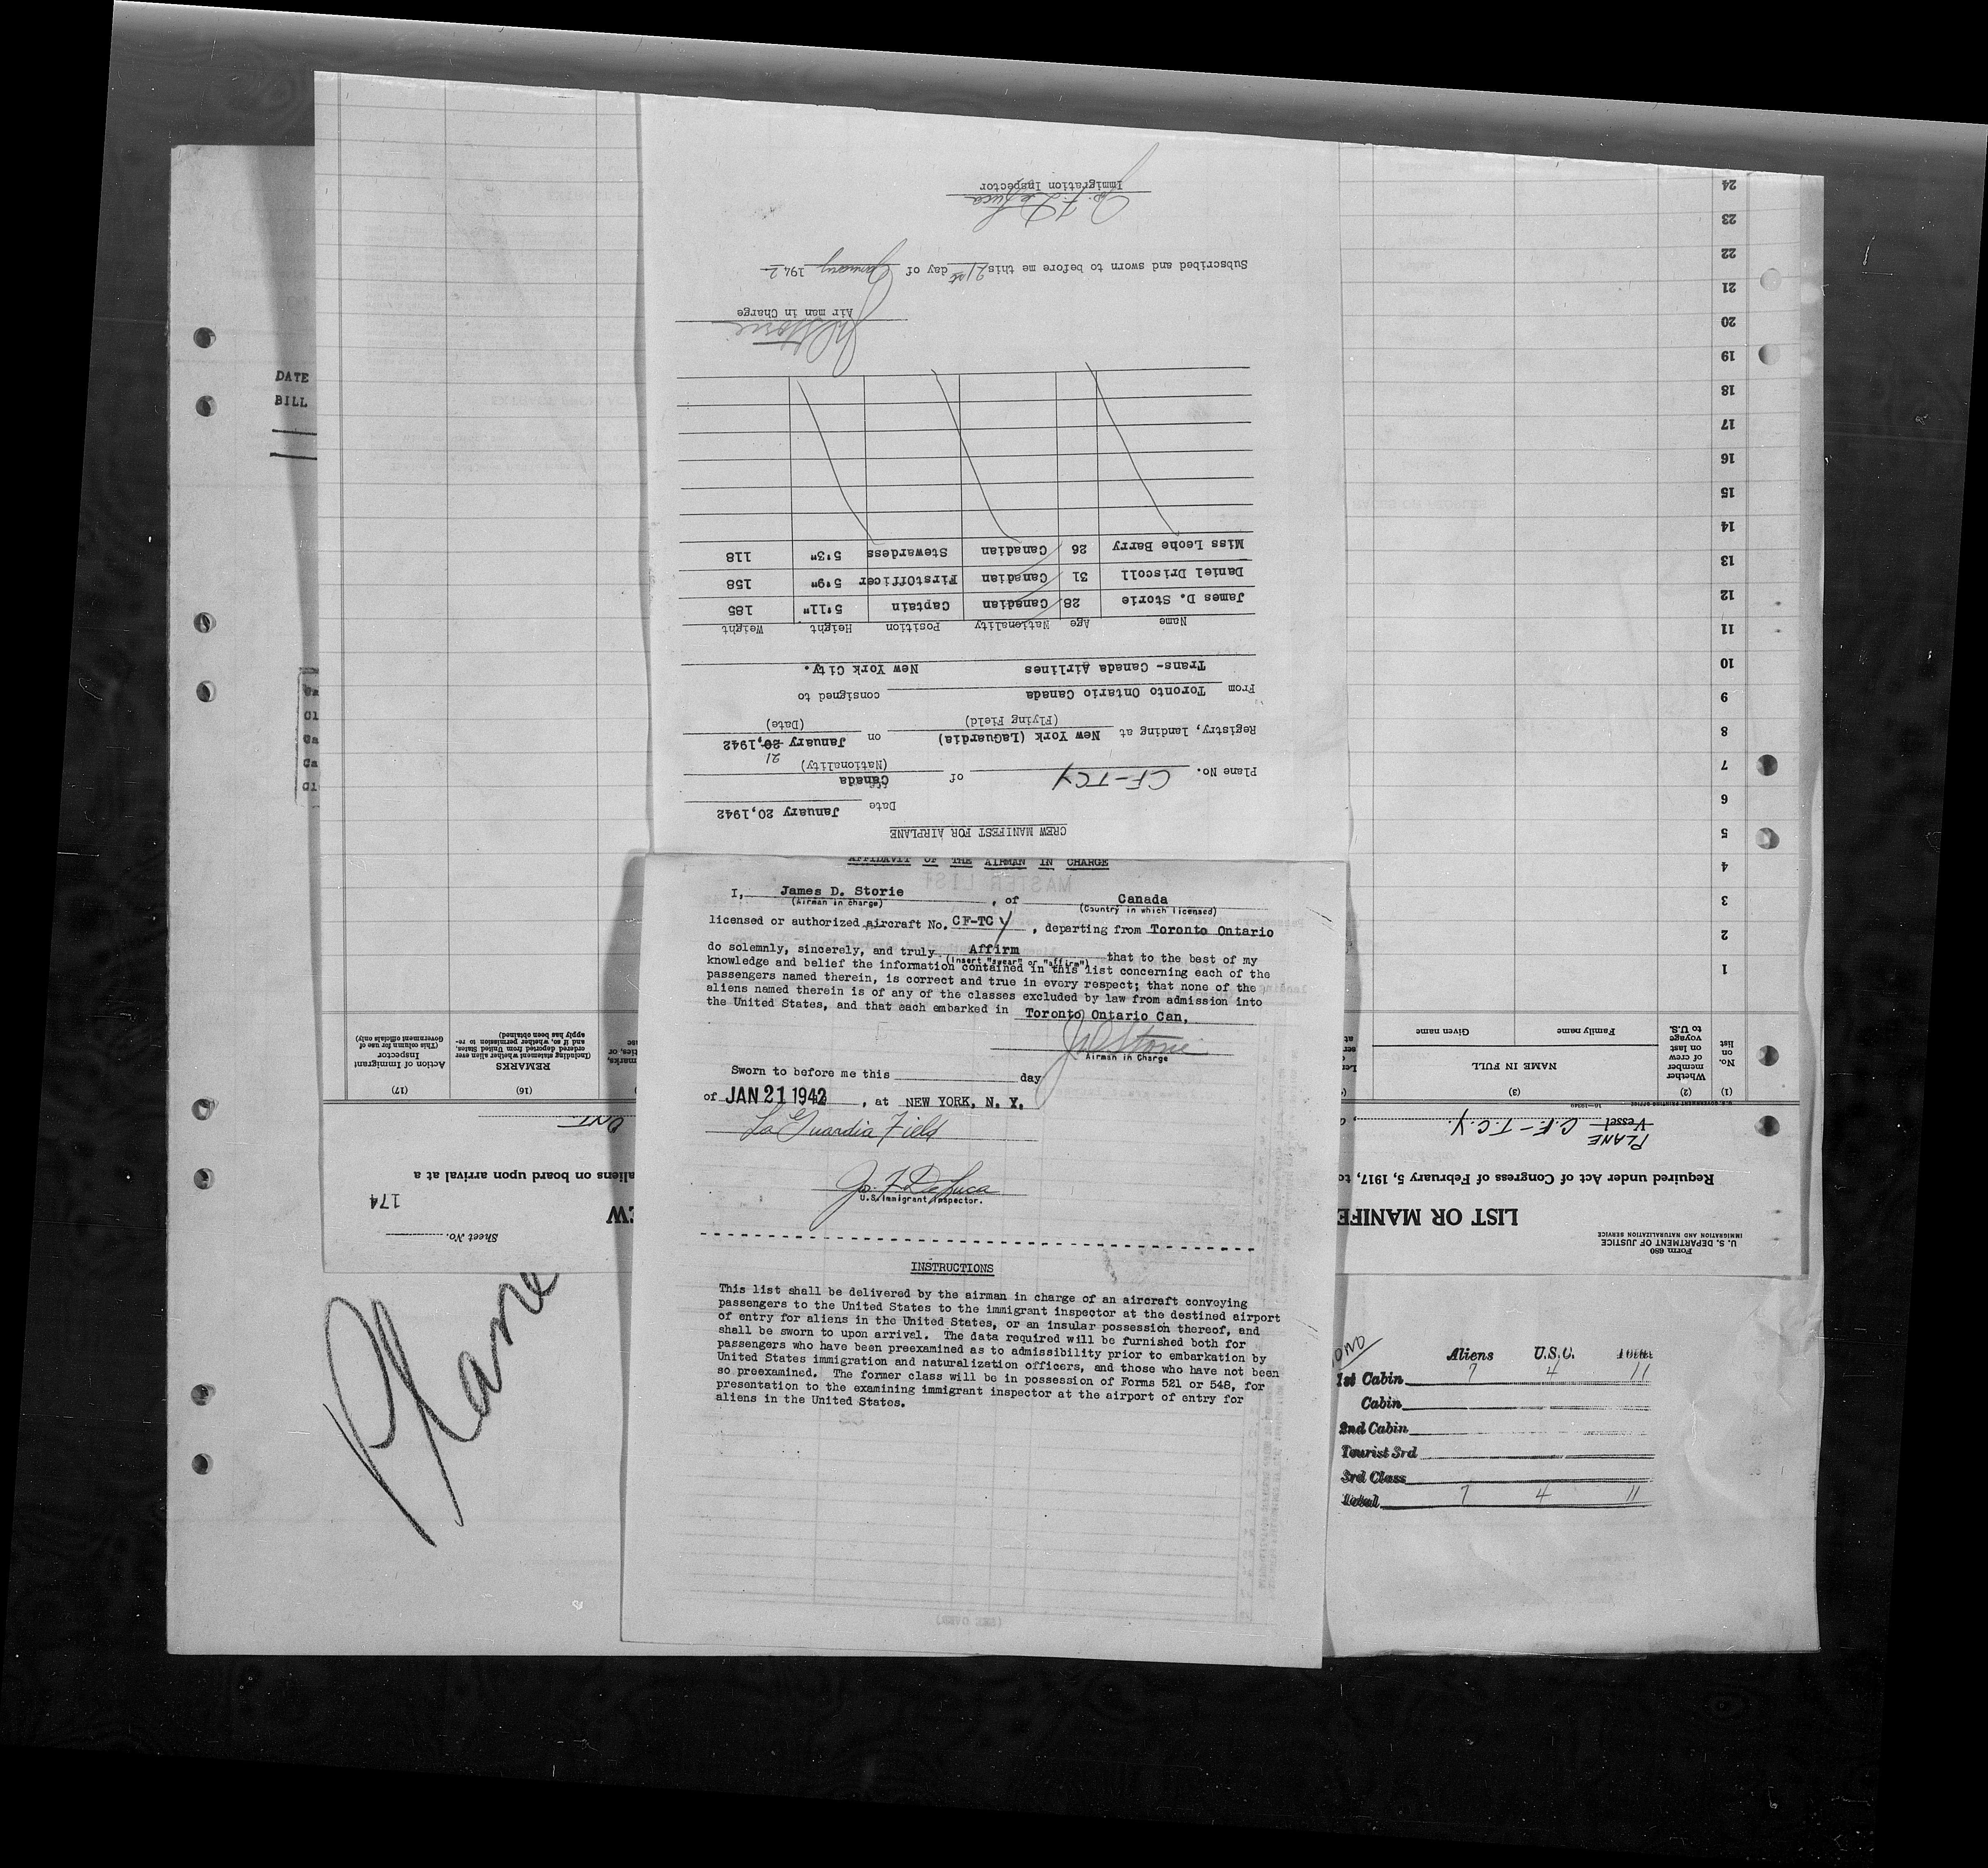 CREW MANIFEST FOR AIRPLANE
Date January 20,1942
Plane No. CF-TCY of Canada
(Nationality)
21
Registry, landing at New York (LaGuardia) on January 20,1942
(Flying Field) (Date)
From Toronto Ontario Canada consigned to
Trans- Canada Airlines New York City.
Name Age Nationality Position Height Weight
James D. Storie 28 Canadian Captain 5'11" 185
Daniel Driscoll 31 Canadian FirstOfficer 5'9" 158
Miss Leohe Barry 26 Canadian Stewardess 5'3" 118
JDStorie
Air man in Charge
Subscribed and sworn to before me this 21st day of January 1942
Jo. F. DeLuca
Immigration Inspector
AFFIDAVIT OF THE AIRMAN IN CHARGE
I, James D. Storie , of Canada
(Airman in charge) (Country in which licensed)
licensed or authorized aircraft No. CF-TCY , departing from Toronto Ontario
do solemnly, sincerely, and truly Affirm that to the best of my
(insert "swear" or "affirm")
knowledge and belief the information contained in this list concerning each of the
passengers named therein, is correct and true in every respect; that none of the
aliens named therein is of any of the classes excluded by law from admission into
the United States, and that each embarked in Toronto Ontario Can,
JDStorie
Airman in Charge
Sworn to before me this day
of JAN 21 1942 , at NEW YORK, N. Y.
La Guardia Field
Jo. F DeLuca
U.S. Immigrant Inspector.
INSTRUCTIONS
This list shall be delivered by the airman in charge of an aircraft conveying
passengers to the United States to the immigrant inspector at the destined airport
of entry for aliens in the United States, or an insular possession thereof, and
shall be sworn to upon arrival. The data required will be furnished both for
passengers who have been preexamined as to admissibility prior to embarkation by
United States immigration and naturalization officers, and those who have not been
so preexamined. The former class will be in possession of Forms 521 or 548, for
presentation to the examining immigrant inspector at the airport of entry for
aliens in the United States.
Form 680
U. S. DEPARTMENT OF JUSTICE
IMMIGRATION AND NATURALIZATION SERVICE
LIST OR MANIFE
EW
Sheet No.
174
Required under Act of Congress of February 5, 1917, to
aliens on board upon arrival at a
PLANE
Vessel C.F.-T.C.Y.
ONT
(1) (2) (3) (16) (17)
No. on list
Whether member of crew on last voyage to U.S.
NAME IN FULL
Family name Given name
REMARKS
(Including statement whether alien ever ordered deported from United States, and if so, whether permission to reapply has been obtained)
Action of Immigrant Inspector
(This column for use of Government officials only)
1
2
3
4
5
6
7
8
9
10
11
12
13
14
15
16
17
18
19
20
21
22
23
24
DATE
BILL
Plane
Aliens U.S.C. Total
1st Cabin 7 4 11
Cabin
2nd Cabin
Tourist 3rd
3rd Class
Total 7 4 11